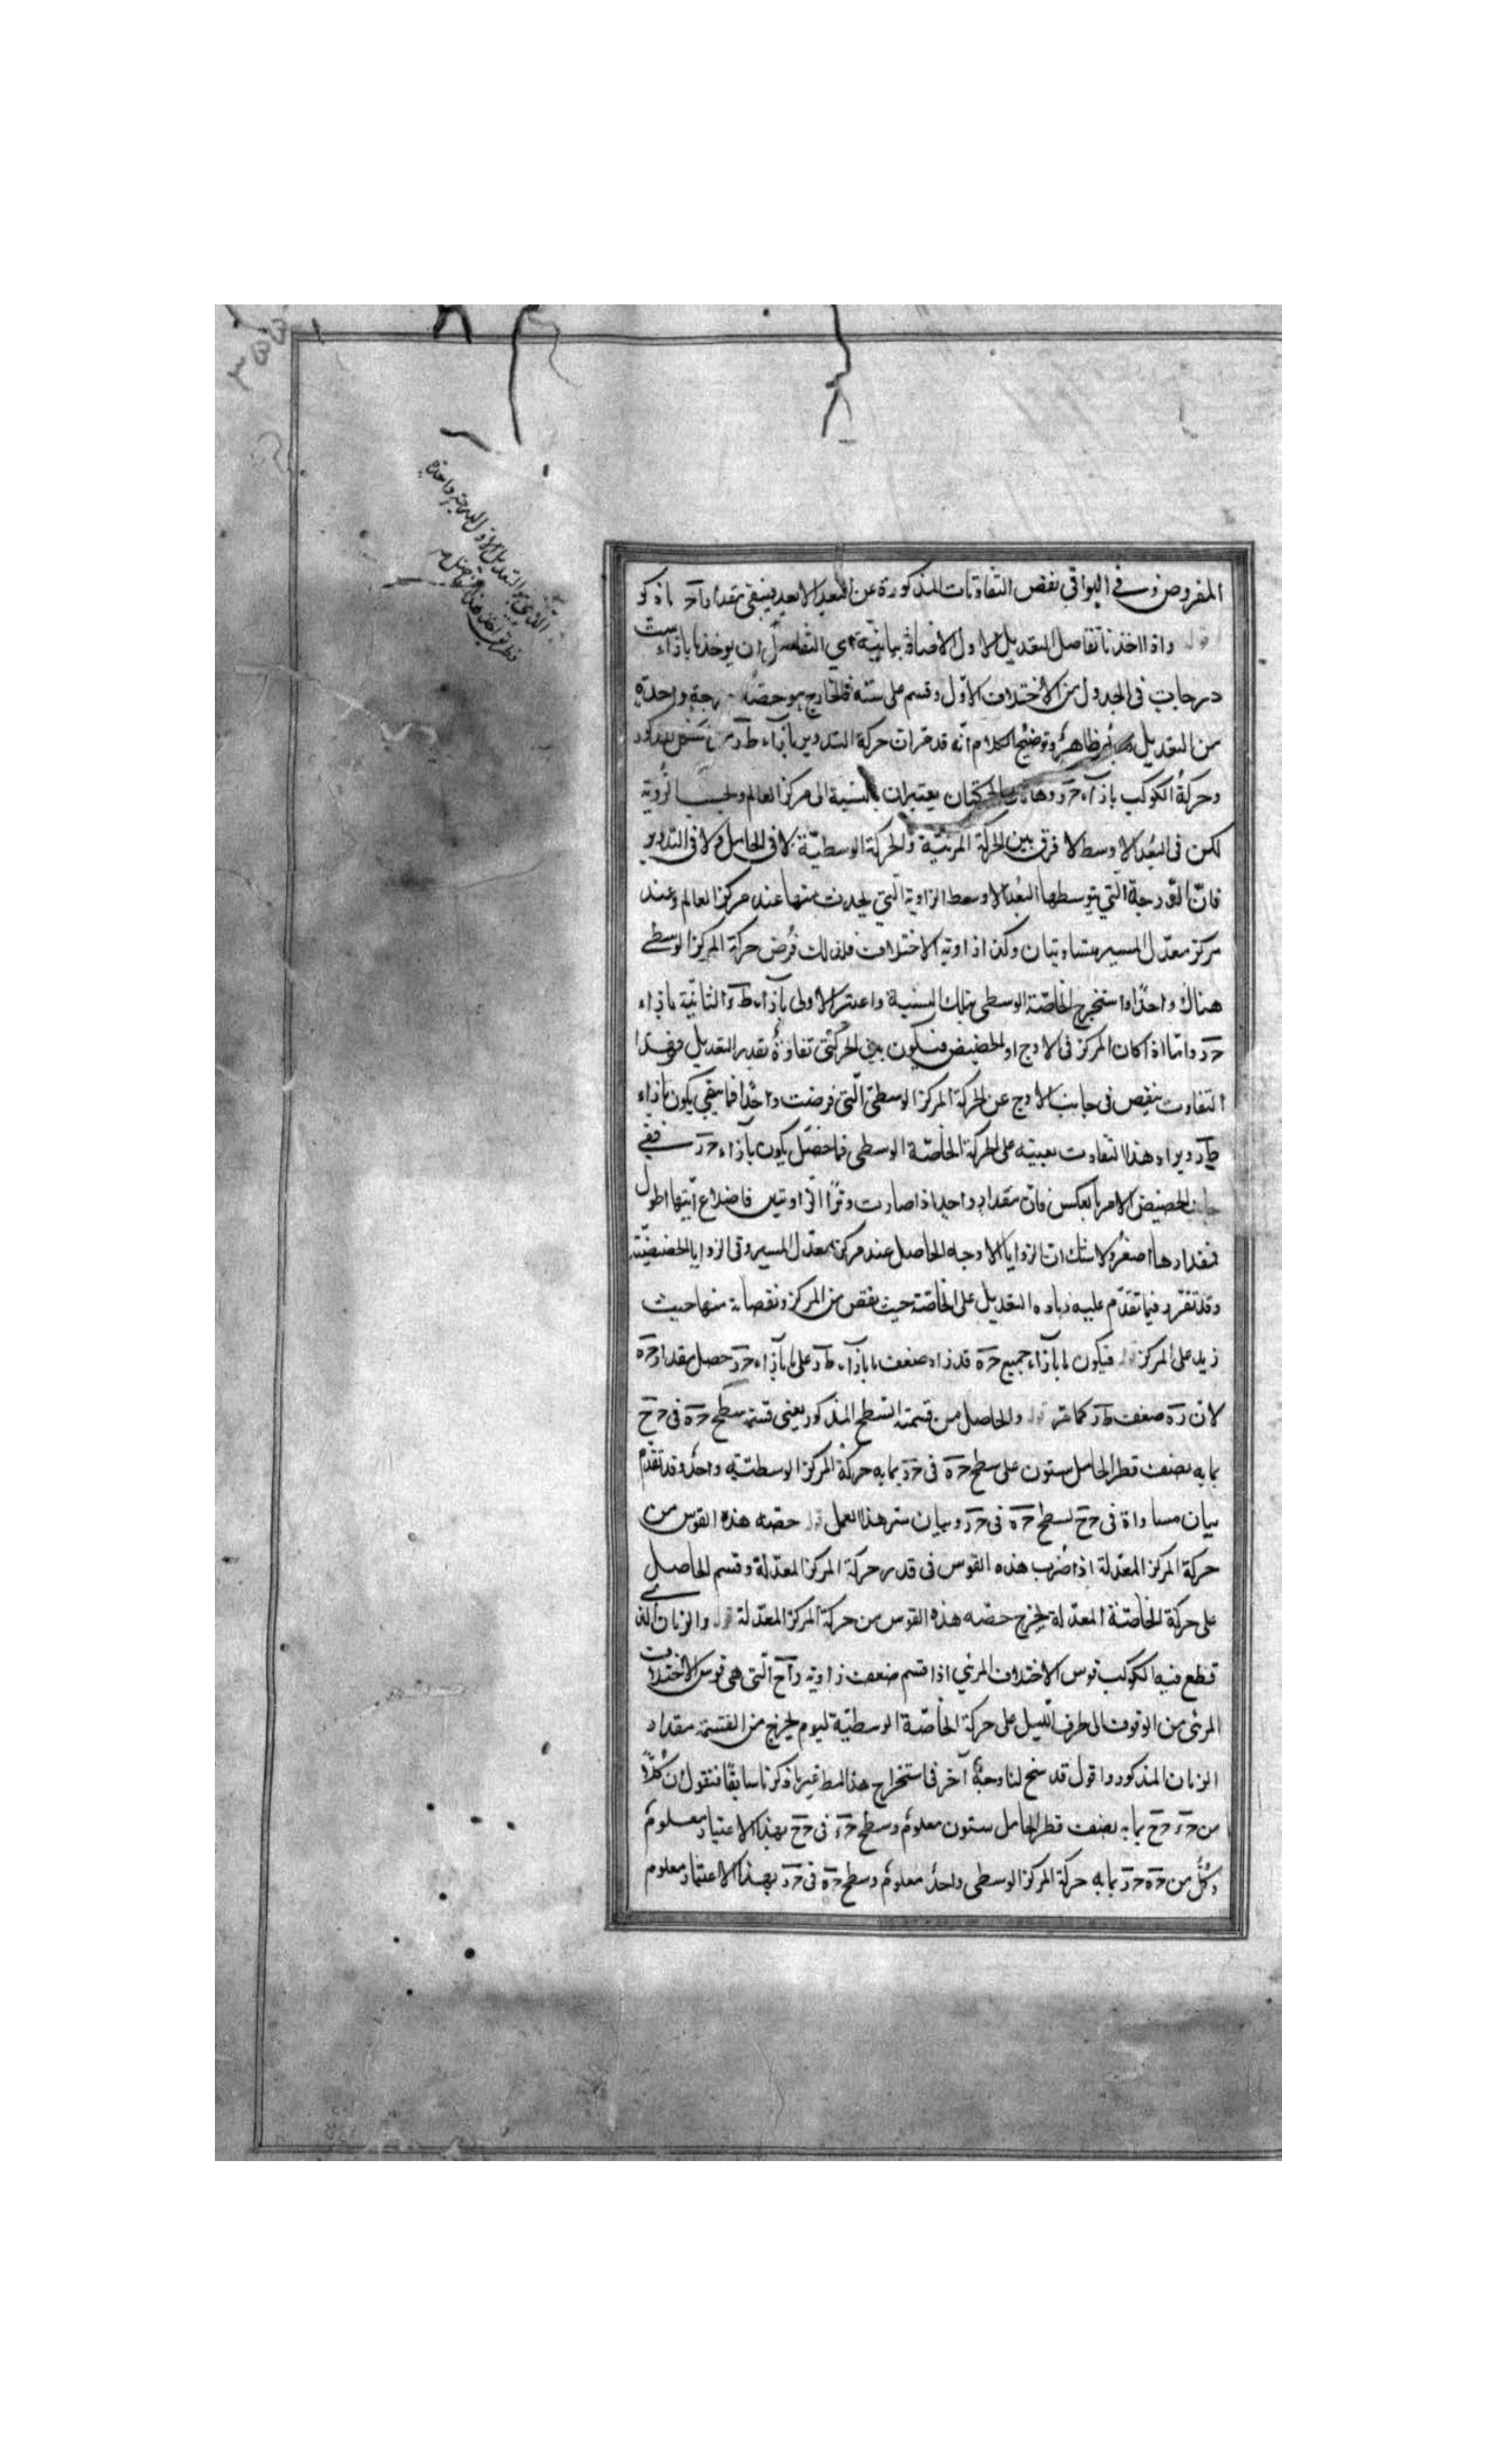 المفروض وفي البواقي نقص التفاوتات المذكورة عن البعد الابعد فيبقى مقدار آح
واذا اخذنا تفاصل التعديل الاول الاضافة بيانية اي التفاصل ان يوخذ ما بازاء ست
درجات في الجدول من الاختلاف الاول وقسم على ستة فالخارج هو حصة درجة واحدة
من التعديل ظاهر وتوضيح الكلام انه قد مر ان حركة التدوير بازاء طر
وحركة الكوكب بازاء حر وهاتان الحركتان يعتبران بالنسبة الى مركز العالم وبحسب الرؤية
لكن في البعد الاوسط لا فرق بين الحركة المرئية والحركة الوسطية لا في الحامل ولا في التدوير
فان الدرجة التي يتوسطها البعد الاوسط الزاوية التي يحدث منها عند مركز العالم وعند
مركز معدل المسير متساويتان وكذا زاوية الاختلاف فلذلك فرض حركة المركز الوسطى
هناك واحدا واستخرج الخاصة الوسطى بتلك النسبة واعتبر الاولى بازاء طر والثانية بازاء
حر واما اذا كان المركز في الاوج او الحضيض فيكون بين الحركتين تفاوت بقدر التعديل فهذا
التفاوت ينقص في جانب الاوج عن الحركة المركز الوسطى التي فرضت واحدا فما يبقى يكون بازاء
طر ويزاد هذا التفاوت بعينه على الحركة الخاصة الوسطى فما حصل يكون بازاء حر ففي
جانب الحضيض الامر بالعكس فان مقدار واحد اذا صارت وترا لزاويتين فاضلاع ايتها اطول
فمقدارها اصغر ولا شك ان الزوايا الاوجية الحاصل عند مركز معدل المسير وفي الزوايا الحضيضية
وقد تقرر فيما تقدم عليه زيادة التعديل على الخاصة حيث نقص من المركز ونقصانه منها حيث
زيد على المركز قوله فيكون ما بازاء جميع حه قد زاد ضعف ما بازاء طر على ما بازاء حر حصل مقدار حه
لان ره ضعف طر كما مر قوله والحاصل من قسمة السطح المذكور يعني قسمة سطح حه في حح
بما به نصف قطر الحامل ستون على سطح حه في حر بما به حركة المركز الوسطية واحد وقد تقدم
بيان مساواة في حح لسطح حه في حر وبيان سر هذا العمل قوله حصه هذه القوس من
حركة المركز المعدلة اذا ضرب هذه القوس في قدر حركة المركز المعدلة وقسم الحاصل
على حركة الخاصة المعدلة يخرج حصه هذه القوس من حركة المركز المعدلة قوله والزمان الذي
قطع فيه الكوكب قوس الاختلاف المرئي اذا قسم ضعف زاوية رآح التي هي قوس الاختلاف
المرئي من الوقوف الى طرف الليل على حركة الخاصة الوسطية ليوم يخرج من القسمة مقدار
الزمان المذكور واقول قد سنح لنا وجه آخر في استخراج هذا المط غير ما ذكرنا سابقا فنقول ان كلا
من حء حح بما به نصف قطر الحامل ستون معلوم وسطح حء في حح بهذا الاعتبار معلوم
وكل من حه حر بما به حركة المركز الوسطى واحد معلوم وسطح حه في حر بهذا الاعتبار معلوم